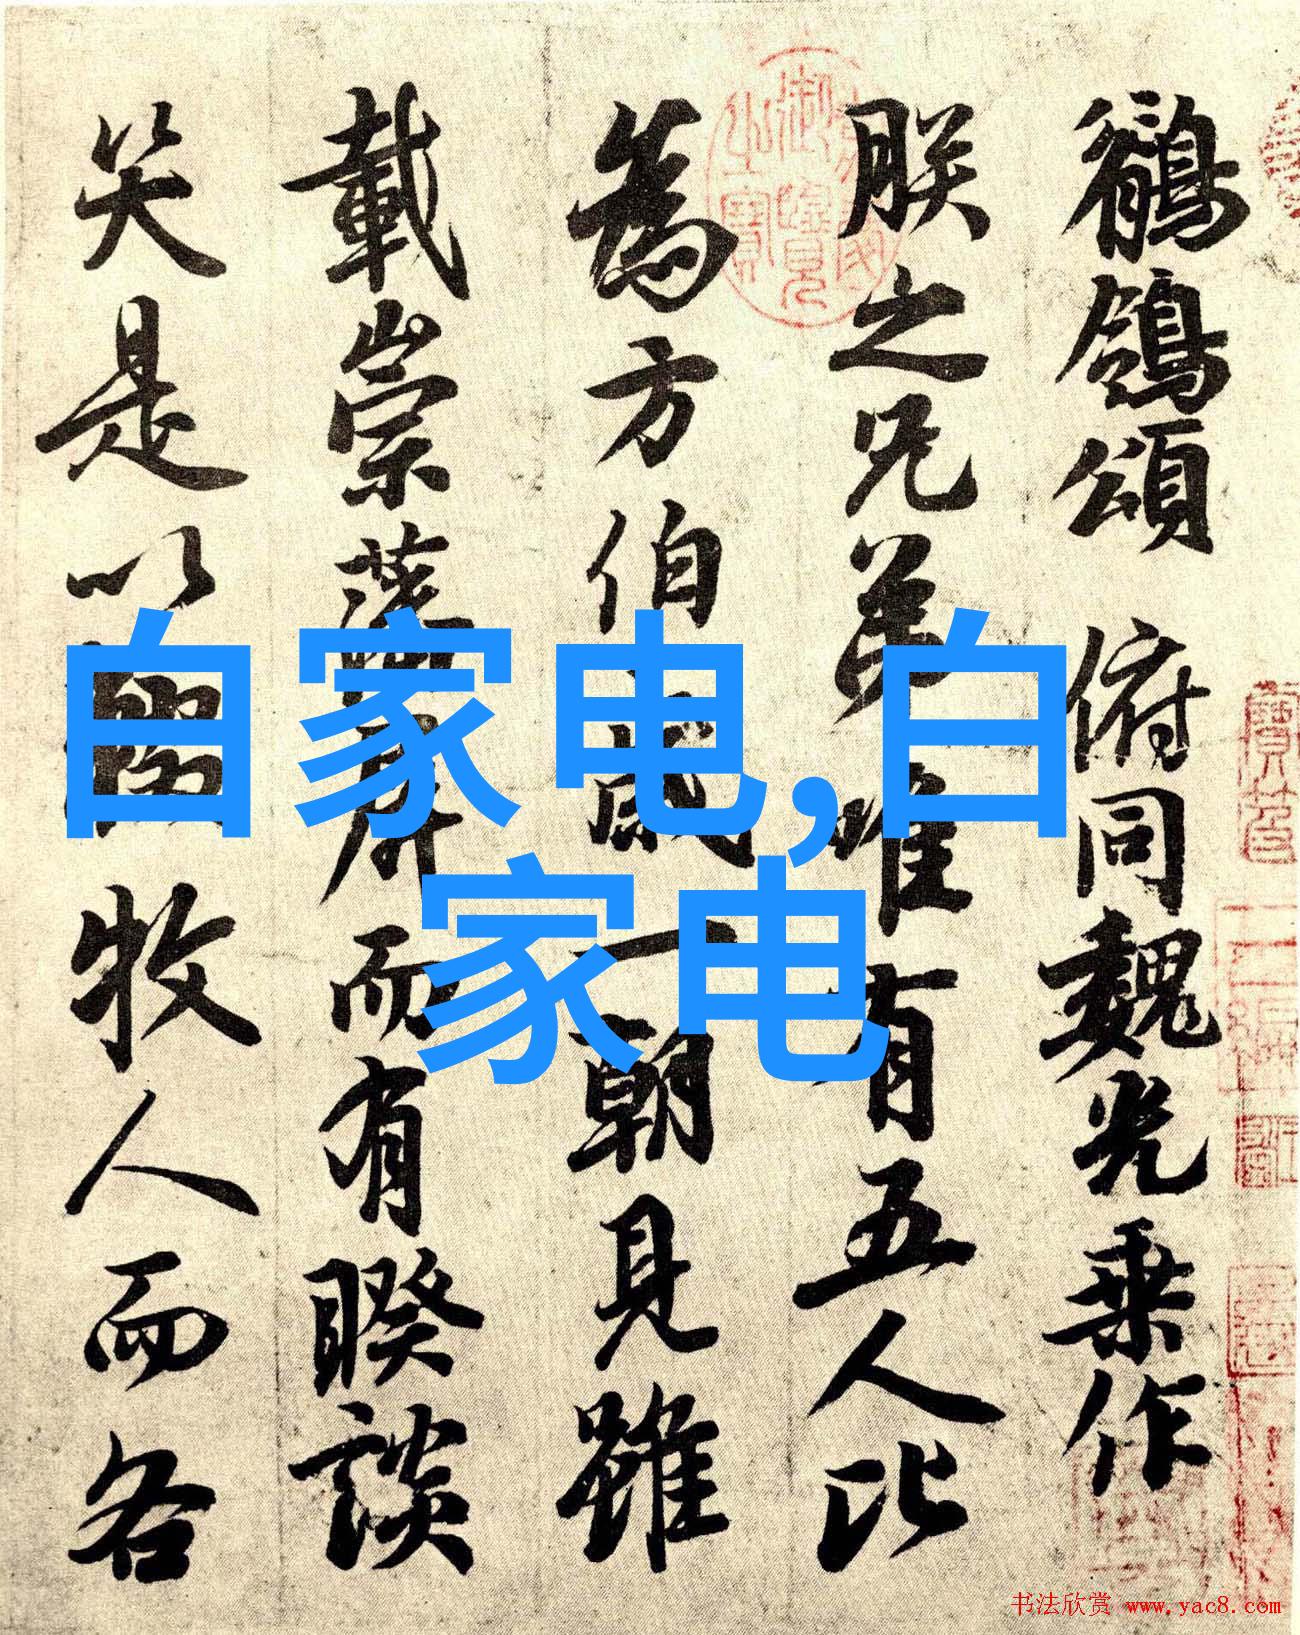 鶺鴒頌 俯同魏光乘作
朕之兄弟唯有五人比
為方伯歲一朝見雖
載崇藩屏而有睽談
笑是以牧人而各
自家电,白
家电
书法欣赏 www.yac8.com